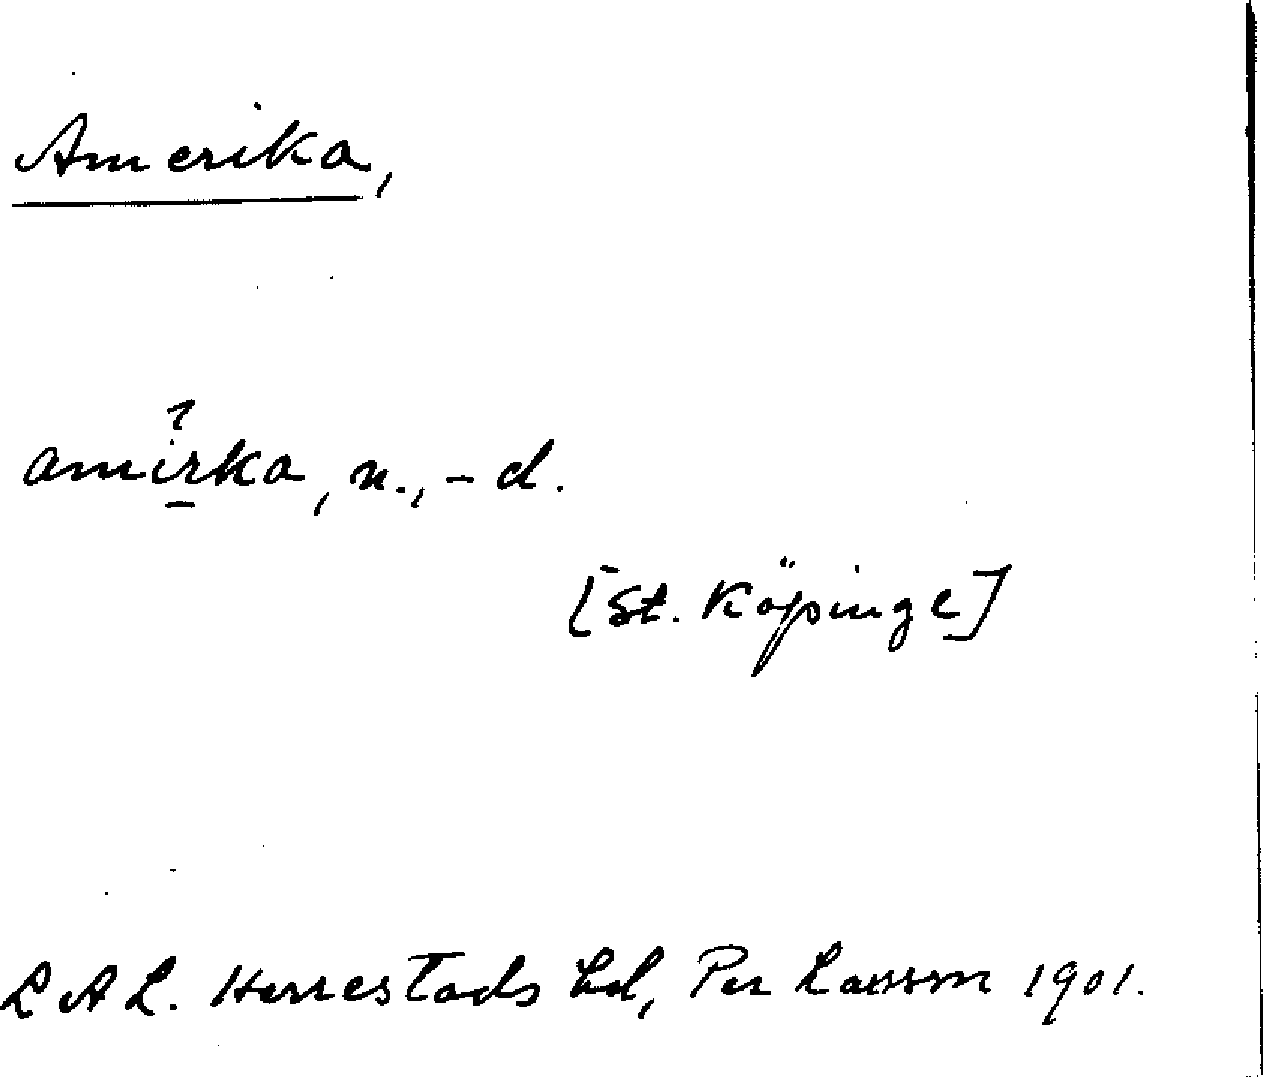 Amerika,
amirka, n., - d.
[St. Köpinge]
L A L. Herrestads hd, Per Larsson 1901.